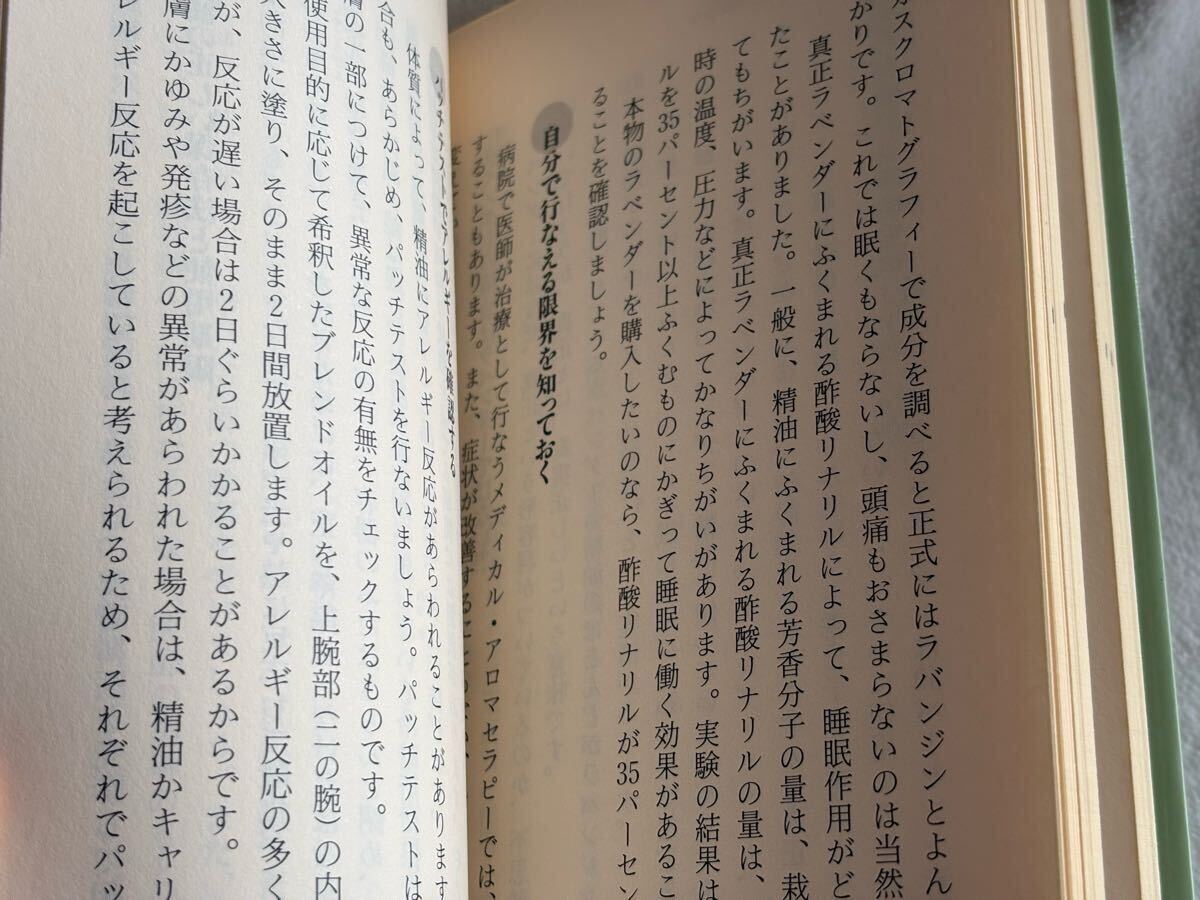 スクロマトグラフィーで成分を調べると正式にはラバンジンとよん
かりです。これでは眠くもならないし、頭痛もおさまらないのは当然
真正ラベンダーにふくまれる酢酸リナリルによって、睡眠作用がど
たことがありました。一般に、精油にふくまれる芳香分子の量は、栽
てもちがいます。真正ラベンダーにふくまれる酢酸リナリルの量は、
時の温度、圧力などによってかなりちがいがあります。実験の結果は
ルを35パーセント以上ふくむものにかぎって睡眠に働く効果があるこ
本物のラベンダーを購入したいのなら、酢酸リナリルが35パーセン
ることを確認しましょう。
自分で行なえる限界を知っておく
病院で医師が治療として行なうメディカル・アロマセラピーでは、
することもあります。また、症状が改善するに
パッチテストでアレルギーを確認する
体質によって、精油にアレルギー反応があらわれることがあります
合も、あらかじめ、パッチテストを行ないましょう。パッチテストは
膚の一部につけて、異常な反応の有無をチェックするものです。
使用目的に応じて希釈したブレンドオイルを、上腕部（二の腕）の内
大きさに塗り、そのまま2日間放置します。アレルギー反応の多く
が、反応が遅い場合は2日ぐらいかかることがあるからです。
膚にかゆみや発疹などの異常があらわれた場合は、精油かキャリ
レルギー反応を起こしていると考えられるため、それぞれでパッ